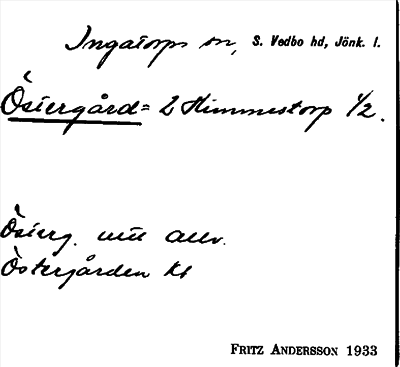 Ingatorps sn, S. Vedbo hd, Jönk. l.
Östergård = 2 Himmestorp 1/2.
Österg. utt allv.
Östergården kt
FRITZ ANDERSSON 1933